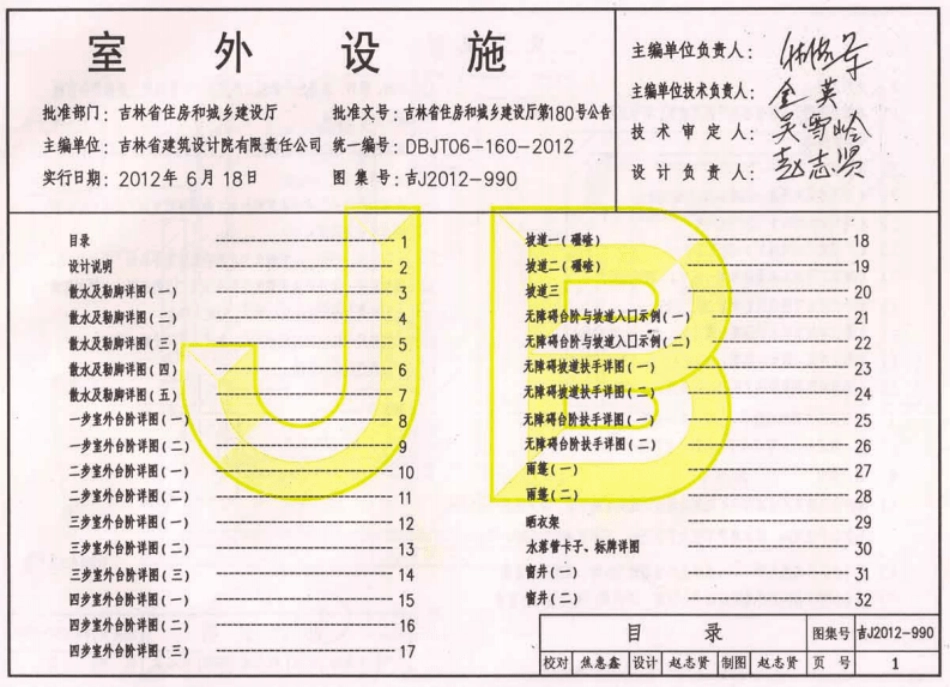 室外设施
批准部门：吉林省住房和城乡建设厅 批准文号：吉林省住房和城乡建设厅第180号公告
主编单位：吉林省建筑设计院有限责任公司 统一编号：DBJT06-160-2012
实行日期：2012年6月18日 图集号：吉J2012-990
主编单位负责人：
主编单位技术负责人：金英
技术审定人：吴雪岭
设计负责人：赵志贤
目录 1
设计说明 2
散水及勒脚详图(一) 3
散水及勒脚详图(二) 4
散水及勒脚详图(三) 5
散水及勒脚详图(四) 6
散水及勒脚详图(五) 7
一步室外台阶详图(一) 8
一步室外台阶详图(二) 9
二步室外台阶详图(一) 10
二步室外台阶详图(二) 11
三步室外台阶详图(一) 12
三步室外台阶详图(二) 13
三步室外台阶详图(三) 14
四步室外台阶详图(一) 15
四步室外台阶详图(二) 16
四步室外台阶详图(三) 17
坡道一(礓䃰) 18
坡道二(礓䃰) 19
坡道三 20
无障碍台阶与坡道入口示例(一) 21
无障碍台阶与坡道入口示例(二) 22
无障碍坡道扶手详图(一) 23
无障碍坡道扶手详图(二) 24
无障碍台阶扶手详图(一) 25
无障碍台阶扶手详图(二) 26
雨篷(一) 27
雨篷(二) 28
晒衣架 29
水落管卡子、标牌详图 30
窗井(一) 31
窗井(二) 32
目录 图集号 吉J2012-990
校对 焦惠鑫 设计 赵志贤 制图 赵志贤 页号 1
JB